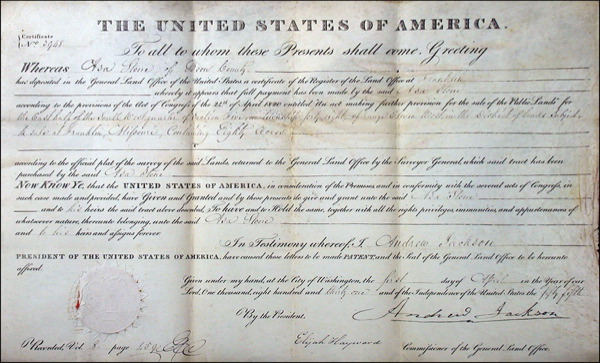 THE UNITED STATES OF AMERICA.
Certificate
No. 2948
To all to whom these Presents shall come, Greeting
Whereas Asa Stone of Boone County
has deposited in the General Land Office of the United States, a certificate of the Register of the Land Office at Franklin
whereby it appears that full payment has been made by the said Asa Stone
according to the provisions of the Act of Congress of the 24th of April 1820, entitled "An act making further provision for the sale of the Public Lands" for
the East half of the South West quarter of Section five, in Township forty eight, of Range eleven West, in the District of Lands subject
to sale at Franklin, Missouri, Containing Eighty Acres
according to the official plat of the survey of the said Lands, returned to the General Land Office by the Surveyor General, which said tract has been
purchased by the said Asa Stone
NOW KNOW YE, that the UNITED STATES OF AMERICA, in consideration of the Premises, and in conformity with the several acts of Congress, in
such case made and provided, have Given and Granted and by these presents do give and grant unto the said Asa Stone
and to his heirs the said tract above described, To Have and to Hold the same, together with all the rights, privileges, immunities, and appurtenances of
whatsoever nature, thereunto belonging, unto the said Asa Stone
and to his heirs and assigns forever
In Testimony whereof, I Andrew Jackson
PRESIDENT OF THE UNITED STATES OF AMERICA, have caused these letters to be made PATENT, and the Seal of the General Land Office to be hereunto
affixed.
Given under my hand, at the City of Washington, the first day of April in the Year of our
Lord, One thousand, eight hundred and thirty one and of the Independence of the United States the fifty fifth
By the President, Andrew Jackson
Elijah Hayward Commissioner of the General Land Office.
Recorded, Vol. 8 page